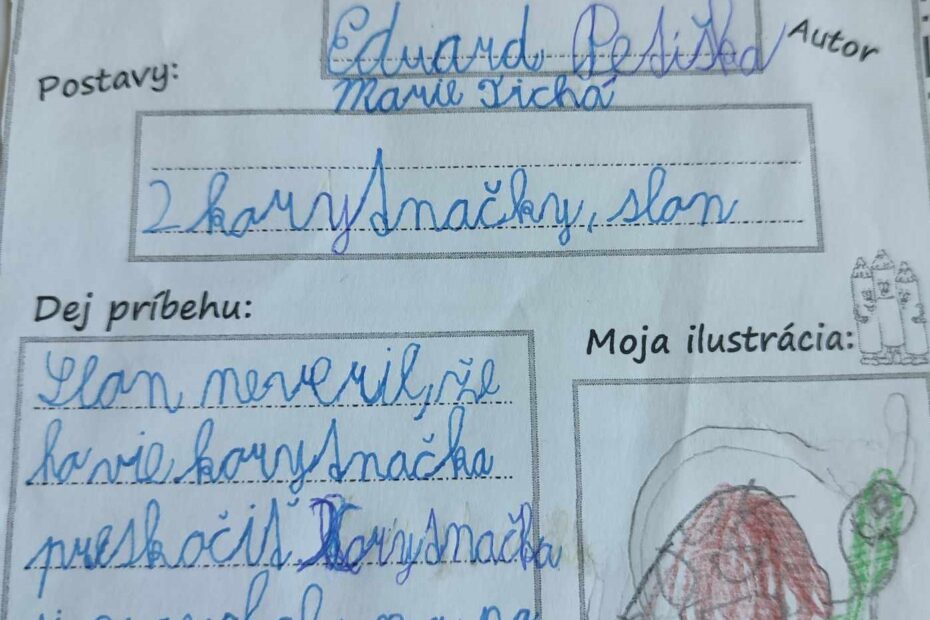 Eduard Petiška
Autor
Postavy:
Marie Tichá
2 korytnačky, slon
Dej príbehu:
Moja ilustrácia:
Slon neveril, že
ho vie korytnačka
preskočiť Korytnačka